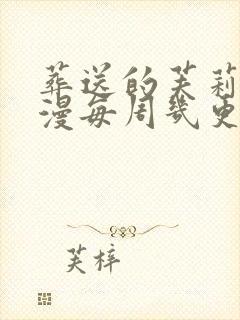 葬送的芙莉
漫每周几更
芙梓